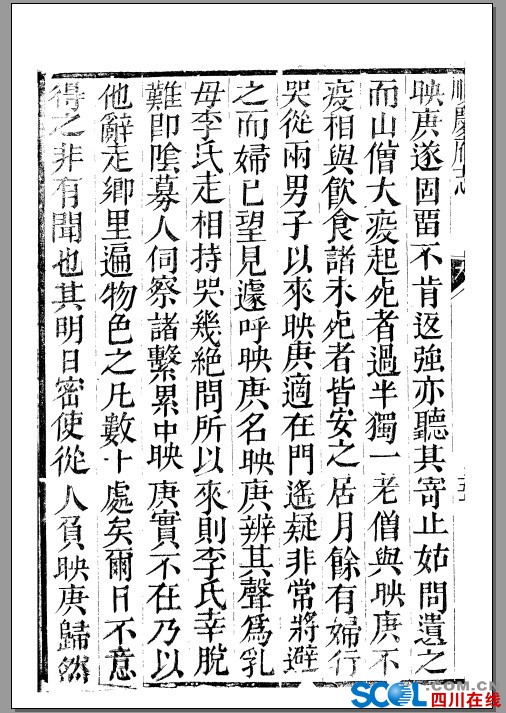 順慶府志
映庚遂固畱不肯返強亦聽其寄止姑問遺之
而山僧大疫起死者過半獨一老僧與映庚不
疫相與飮食諸未死者皆安之居月餘有婦行
哭從兩男子以來映庚適在門遙疑非常將避
之而婦已望見遽呼映庚名映庚辨其聲爲乳
毋李氏走相持哭幾絶問所以來則李氏幸脫
難卽陰募人伺察諸繫累中映庚實不在乃以
他辭走鄉里遍物色之凡數十處矣爾日不意
得之非有聞也其明日密使從人負映庚歸然
SCOL.COM.CN
四川在线